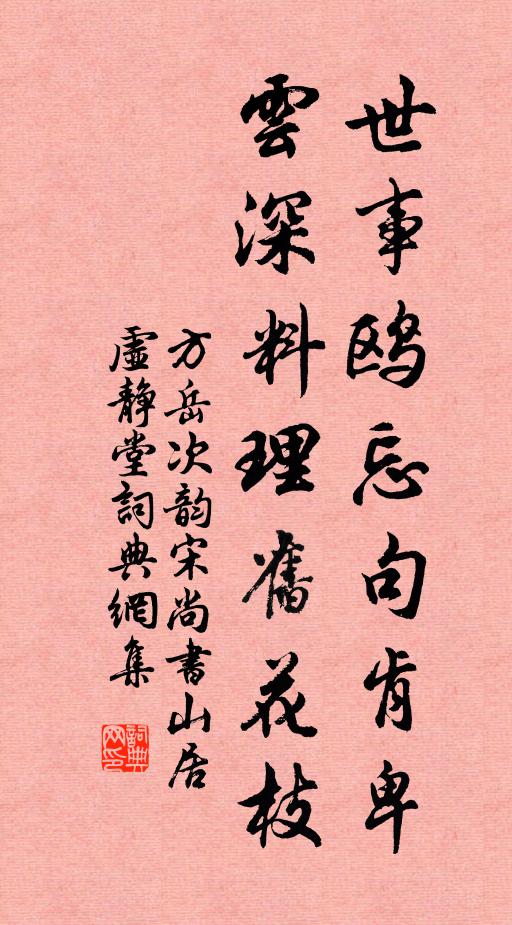 世事鸥忘句肯卑
雲深料理舊花枝
方岳次韵宋尚書山居
虛靜堂詞典網集
詞典网印